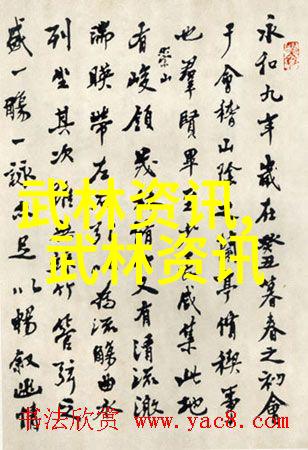 永和九年歲在癸丑暮春之初會
于會稽山陰之蘭亭脩稧事
也羣賢畢至少長咸集此地
有崇山峻領茂脩又有清流激
湍暎帶左右引以為流觴曲水
列坐其次雖無竹管弦之
盛一觴一詠亦足以暢敘幽情
武林资讯,
武林资讯
书法欣赏 www.yac8.com